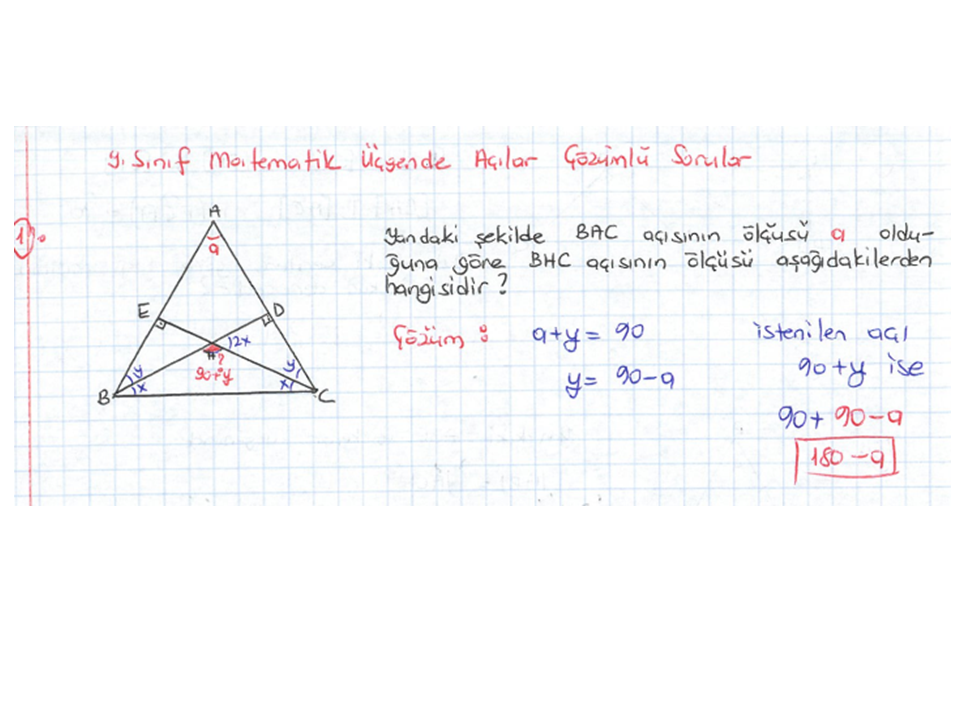 9. Sınıf Matematik Üçgende Açılar Çözümlü Sorular
1).
A
a
E
D
H
?
12x
90+y
y
x
y
x
B
C
Yandaki şekilde BAC açısının ölçüsü a oldu-
ğuna göre BHC açısının ölçüsü aşağıdakilerden
hangisidir?
Çözüm : a+y = 90
y = 90-a
istenilen açı
90+y ise
90+ 90-a
180-a